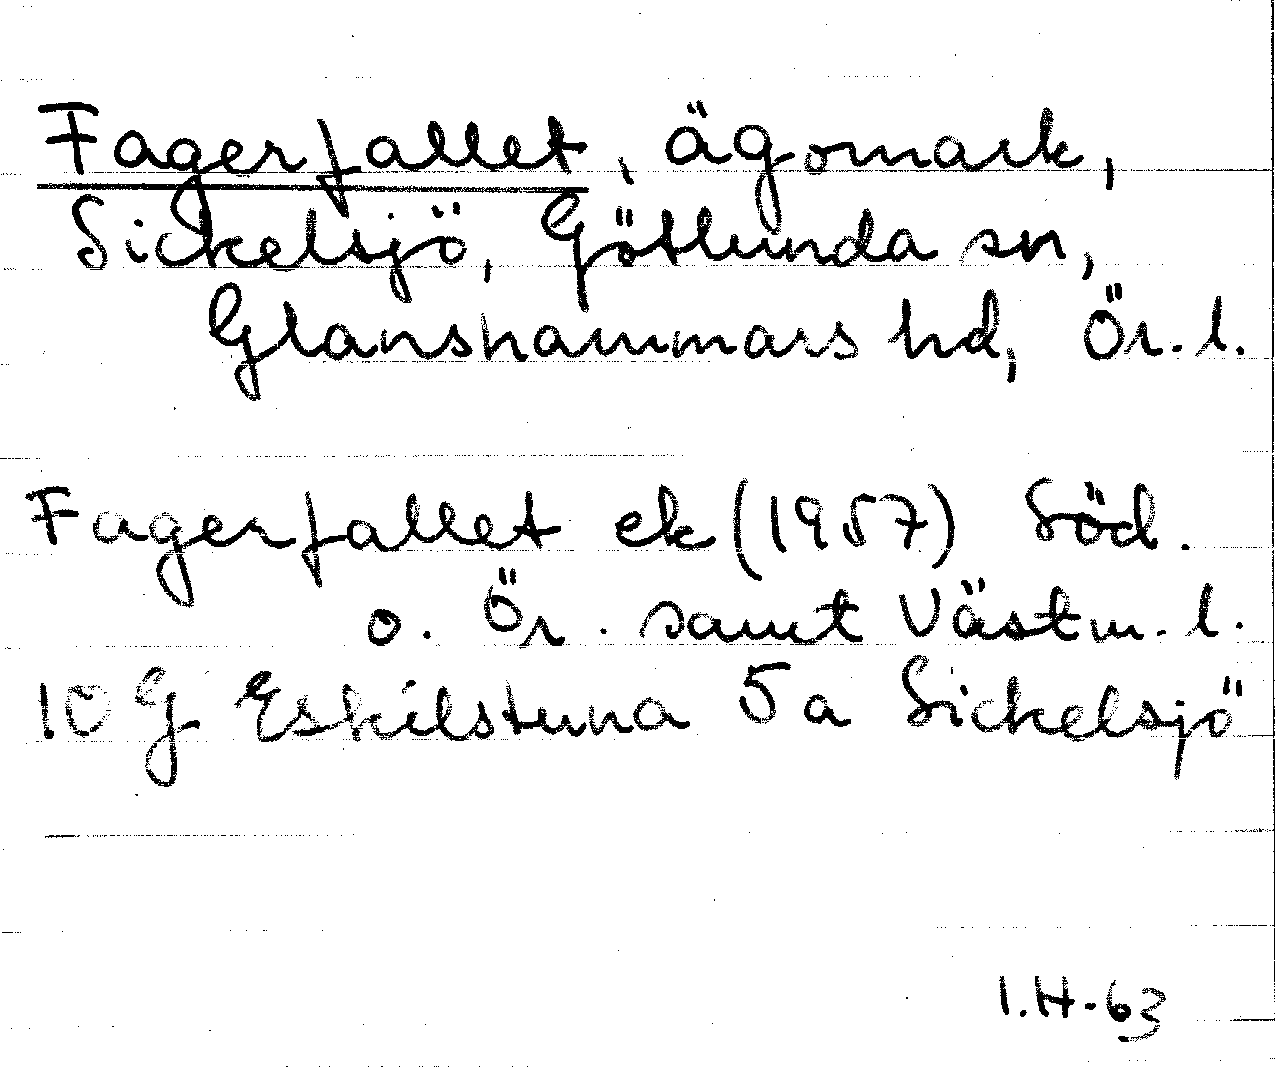 Fagerfallet, ägomark,
Sickelsjö, Götlunda sn,
Glanshammars hd, Ör. l.
Fagerfallet ek (1957) Söd.
o. Ör. samt Västm. l.
10 G Eskilstuna 5a Sickelsjö
I.H-63